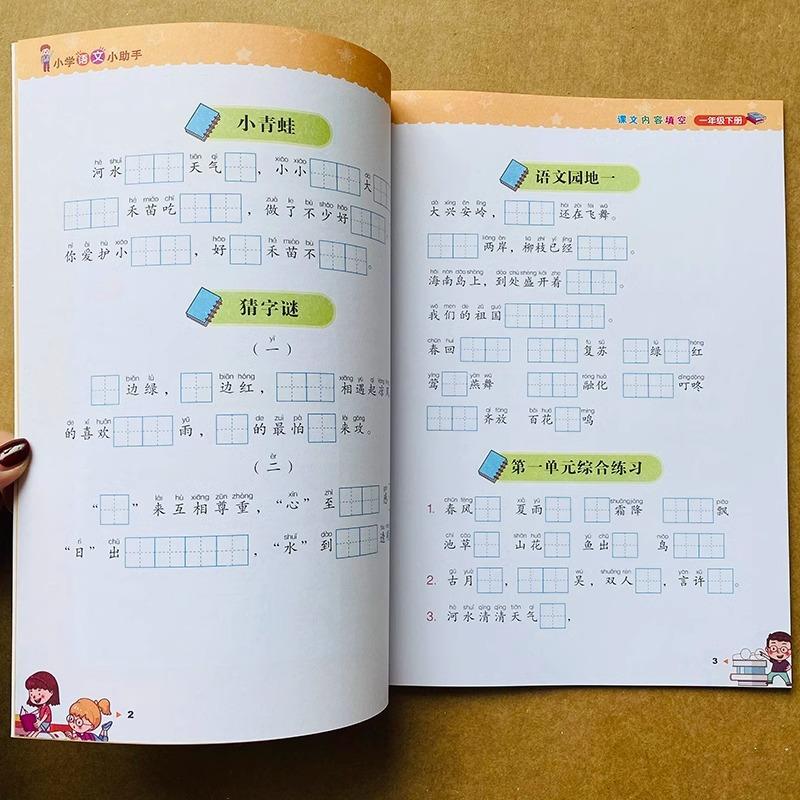 小学语文小助手
小青蛙
hé shuǐ tiān qì xiǎo xiǎo dà
河水□□天气□，小小□□□大
hé miáo chī zuò le bù shǎo hǎo
□□禾苗吃□□□，做了不少好□□
nǐ ài hù xiǎo hǎo hé miáo bù
你爱护小□□□，好□禾苗不□□。
猜字谜
yī
（一）
biān lǜ biān hóng xiāng yù qǐ
□边绿，□边红，□□相遇起凉
de xǐ huān yǔ de zuì pà lái gōng
的喜欢□□雨，□的最怕□来攻。
èr
（二）
lái hù xiāng zūn zhòng xīn zhì
“□”来互相尊重，“心”至□□
rì chū shuǐ dào
“日”出□□□□，“水”到□□
2
课文内容填空 一年级下册
语文园地一
dà xīng ān lǐng hái zài fēi wǔ
大兴安岭，□□还在飞舞。
liǎng àn liǔ zhī yǐ jīng
□□两岸，柳枝已经□□。
hǎi nán dǎo shàng dào chù shèng kāi zhe
海南岛上，到处盛开着□□。
wǒ men de zǔ guó
我们的祖国□□□□。
chūn huí fù sū lǜ hóng
春回□□ □□复苏 □绿□红
yīng yàn wǔ róng huà dīng dōng
莺□燕舞 □□融化 □□叮咚
qí fàng bǎi huā míng
□□齐放 百花□鸣
第一单元综合练习
chūn fēng xià yǔ shuāng jiàng piāo
1. 春风□ 夏雨□ □霜降 □□飘
chí cǎo shān huā yú chū niǎo
池草□ 山花□ 鱼出□ 鸟□□
gǔ yuè wú shuāng rén yán xǔ
2. 古月□，□□吴，双人□，言许□。
hé shuǐ qīng qīng tiān qì
3. 河水清清天气□，
3